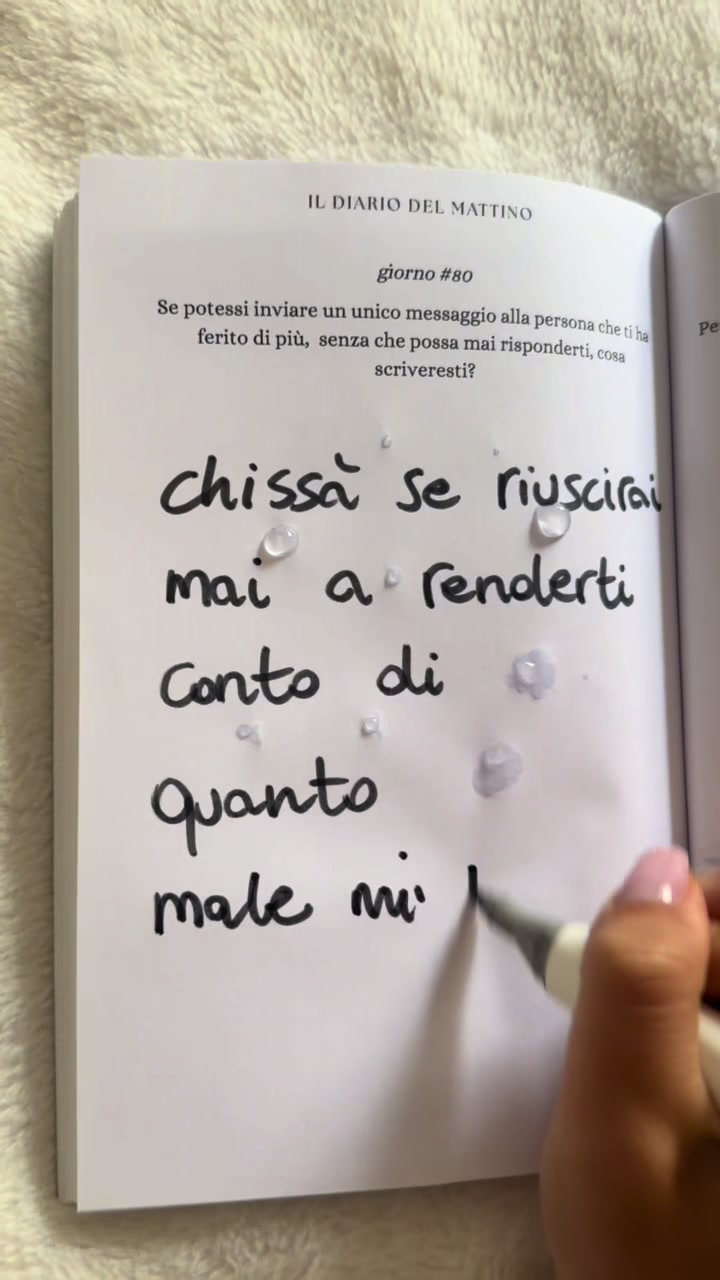 IL DIARIO DEL MATTINO
giorno #80
Se potessi inviare un unico messaggio alla persona che ti ha
ferito di più, senza che possa mai risponderti, cosa
scriveresti?
chissà se riuscirai
mai a renderti
conto di
quanto
male mi